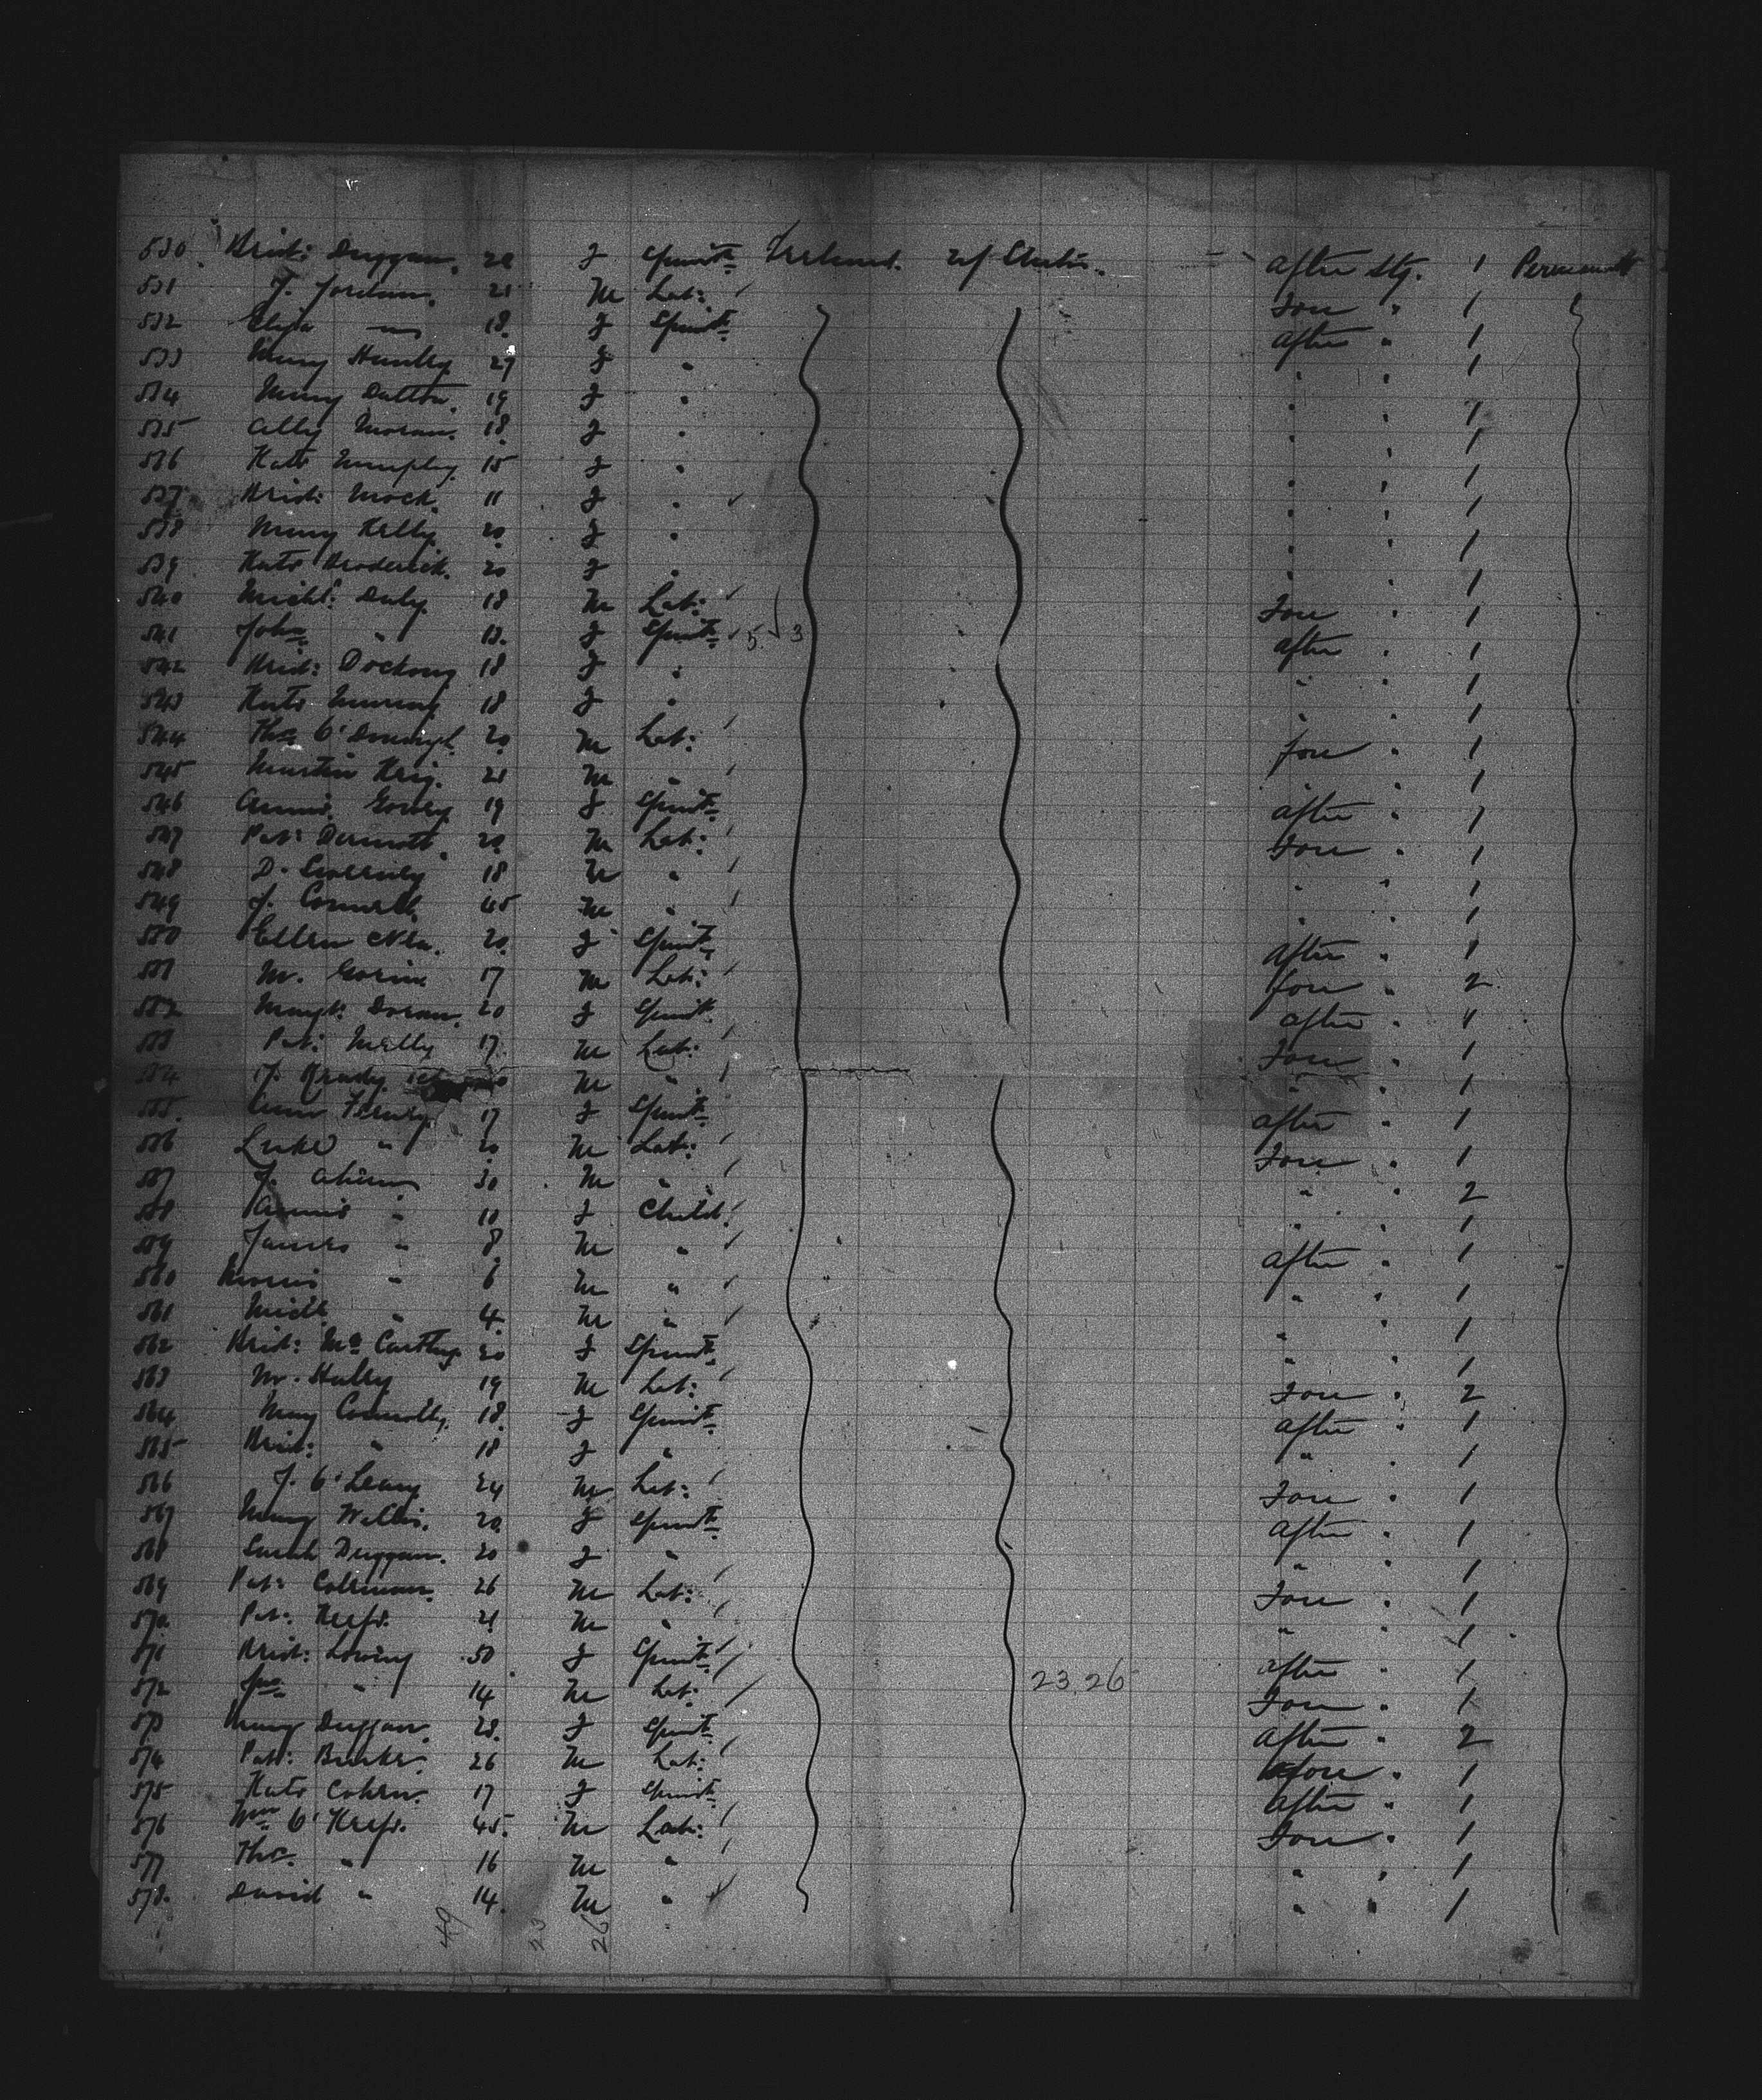 530 Brid: Duggan. 20 F Spinst. Ireland. U/States. After Stg. 1 Permanent
531 J. Jordan. 21 M Lab: Fore " 1
532 Eliza " 18 F Spinst. After " 1
533 Mary Hanley 27 F " " " 1
534 Mary Dalton. 19 F " " " 1
535 Ally Moran. 18 F " " " 1
536 Kate Murphy 15 F " " " 1
537 Brid: Mock. 11 F " " " 1
538 Mary Kelly 20 F " " " 1
539 Kate Broderick. 20 F " " " 1
540 Michl: Daly 18 M Lab: Fore " 1
541 John " 13. F Spinst. 5 3 After " 1
542 Brid: Dockery 18 F " " " 1
543 Kate Murray 18 F " " " 1
544 Thos. O' 20 M Lab: Fore " 1
545 Martin 21 M " " " 1
546 Annie 19 F Spinst. After " 1
547 Pat: Dermott. 20 M Lab: Fore " 1
548 D. 18 M " " " 1
549 J. 45 M " " " 1
550 Ellen 20 F Spinst. After " 1
551 M. 17 M Lab: Fore " 2
552 Margt: Doran. 20 F Spinst. After " 1
553 Pat: Melly 17 M Lab: Fore " 1
554 J. Brady M " " " 1
555 Ann 17 F Spinst. After " 1
556 Luke " 20 M Lab: Fore " 1
557 J. 30 M " " " 2
558 Annie " 10 F Child. " " 1
559 James " 8 M " After " 1
560 Morris " 6 M " " " 1
561 Michl " 4 M " " " 1
562 Brid: Mc Carthy 20 F Spinst. " " 1
563 M. 19 M Lab: Fore " 2
564 Mary Connolly. 18 F Spinst. After " 1
565 Brid: " 18 F " " " 1
566 J. O'Leary 24 M Lab: Fore " 1
567 Mary Wallis. 20 F Spinst. After " 1
568 Sarah Duggan. 20 F " " " 1
569 Pat: Coleman. 26 M Lab: Fore " 1
570 Pat: Keefe. 21 M " " " 1
571 Brid: 50 F Spinst. After " 1
572 Jno. " 14 M Lab: 23.26 Fore " 1
573 Mary Duggan. 23. F Spinst. After " 2
574 Pat: Burke. 26 M Lab: Fore " 1
575 Kate Cohen. 17 F Spinst. After " 1
576 Wm O'Keefe. 45. M Lab: Fore " 1
577 Thos. " 16 M " " " 1
578. David " 14. M " " " 1
49 23 26